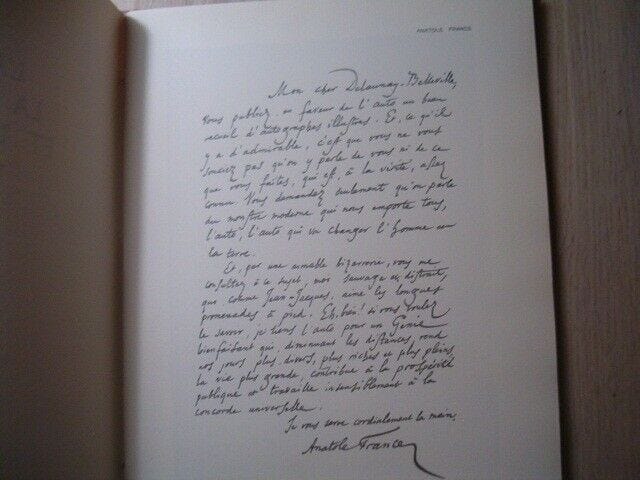 ANATOLE FRANCE
Mon cher Delaunay-Belleville,
Vous publiez, en faveur de l'auto un beau
recueil d'autographes illustres. Et, ce qu'il
y a d'admirable, c'est que vous ne vous
souciez pas qu'on y parle de vous ni de ce
que vous faites, qui est, à la vérité, assez
connu. Vous demandez seulement qu'on parle
du monstre moderne qui nous emporte tous,
l'auto, l'auto qui va changer l'homme et
la terre.
Et, par une aimable bizarrerie, vous me
consultez à ce sujet, moi sauvage et distrait,
qui comme Jean-Jacques, aime les longues
promenades à pied. Eh, bien! si vous voulez
le savoir, je tiens l'auto pour un Génie
bienfaisant qui, diminuant les distances, rend
nos jours plus divers, plus riches et plus pleins
la vie plus grande, contribue à la prospérité
publique et travaille insensiblement à la
concorde universelle.
Je vous serre cordialement la main,
Anatole France